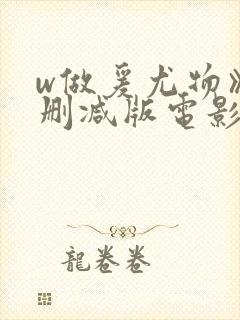 w做爰尤物》
删减版電影
龍卷卷